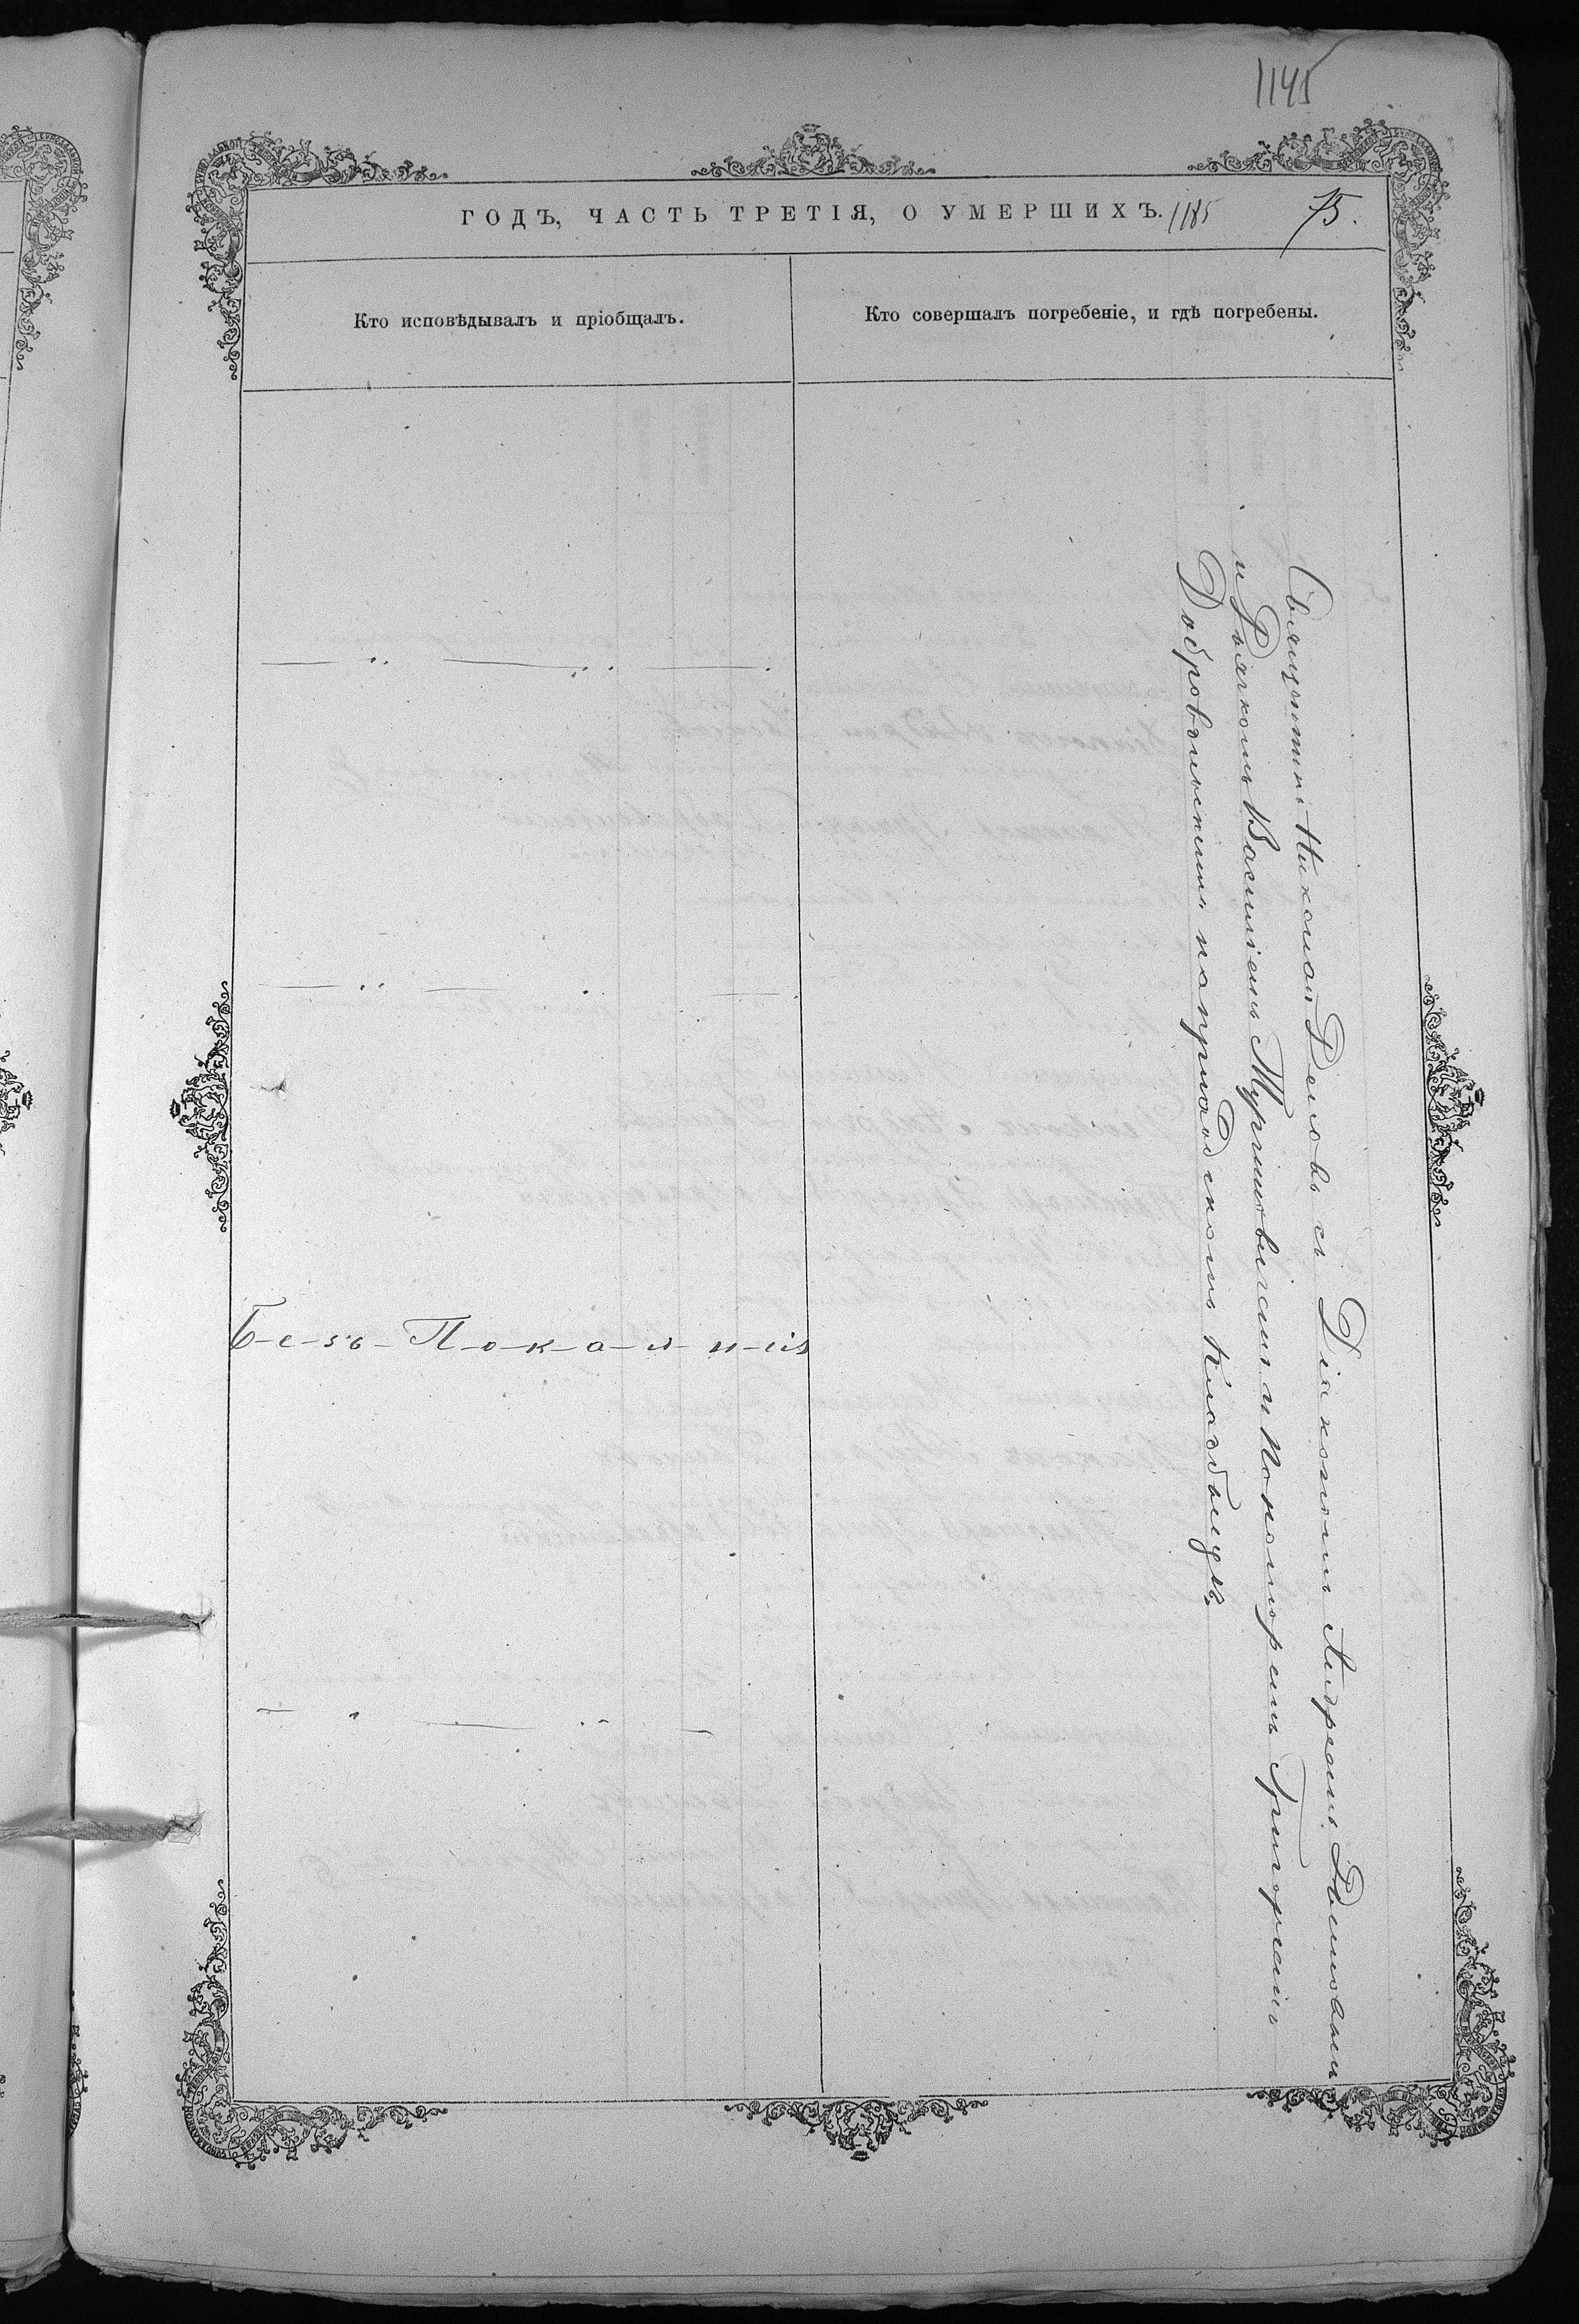 1145
ГОДЪ, ЧАСТЬ ТРЕТІЯ, О УМЕРШИХЪ. 1185 75.
Кто исповѣдывалъ и пріобщалъ.
Кто совершалъ погребеніе, и гдѣ погребены.
Безъ Покаянія
Священникъ Николай съ Діакономъ Андреемъ
и Дьячкомъ Василіемъ и Пономоремъ Григоріемъ
Добровольскимъ на приходскомъ кладбищѣ.